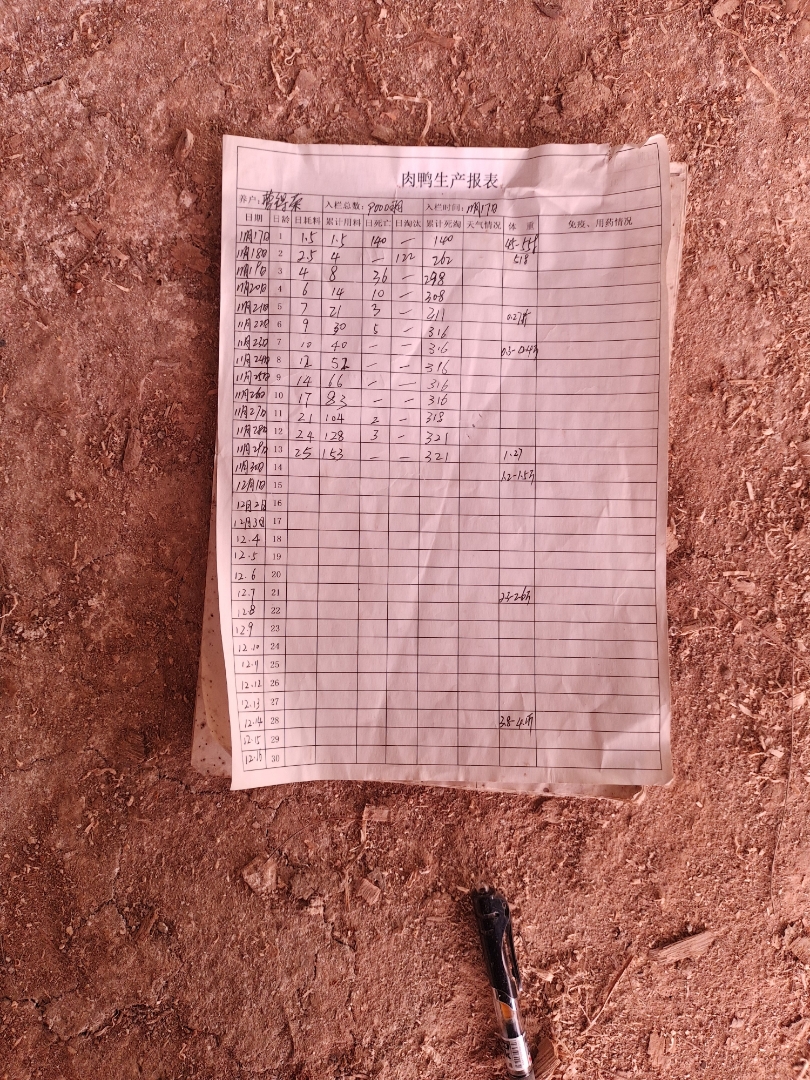 肉鸭生产报表
养户: 入栏总数: 9000 入栏时间: 11月17日
日期 日龄 日耗料 累计用料 日死亡 日淘汰 累计死淘 天气情况 体 重 免疫、用药情况
11月17日 1 1.5 1.5 140 — 140
11月18日 2 2.5 4 — 122 262 518
11月19日 3 4 8 36 — 298
11月20日 4 6 14 10 — 308
11月21日 5 7 21 3 — 311
11月22日 6 9 30 5 — 316
11月23日 7 10 40 — — 316
11月24日 8 12 52 — — 316
11月25日 9 14 66 — — 316
11月26日 10 17 83 — — 316
11月27日 11 21 104 2 — 318
11月28日 12 24 128 3 — 321
11月29日 13 25 153 — — 321 1.27
11月30日 14 1.2-1.5斤
12月1日 15
12月2日 16
12月3日 17
12.4 18
12.5 19
12.6 20
12.7 21 2.3-2.6斤
12.8 22
12.9 23
12.10 24
12.11 25
12.12 26
12.13 27
12.14 28
12.15 29
12.16 30